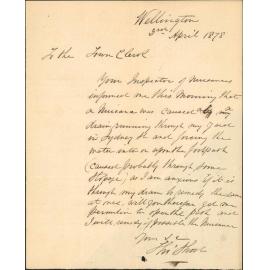 Wellington
2nd April 1878
To the Town Clerk
Your Inspector of Nuisances
informed me this Morning that
a Nuisance was caused by a
drain running through my yard
in Sydney St and forcing the
water onto or upon the footpath
(caused probably through some
stoppage) as I am anxious if it is
through my drain to remedy the same
at once, will you therefore get me
permission to open the path and
I will remedy if possible the Nuisance
Yours &c